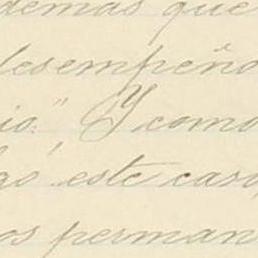 demas que
desempeño
io." Y como
gó este caso,
os perman